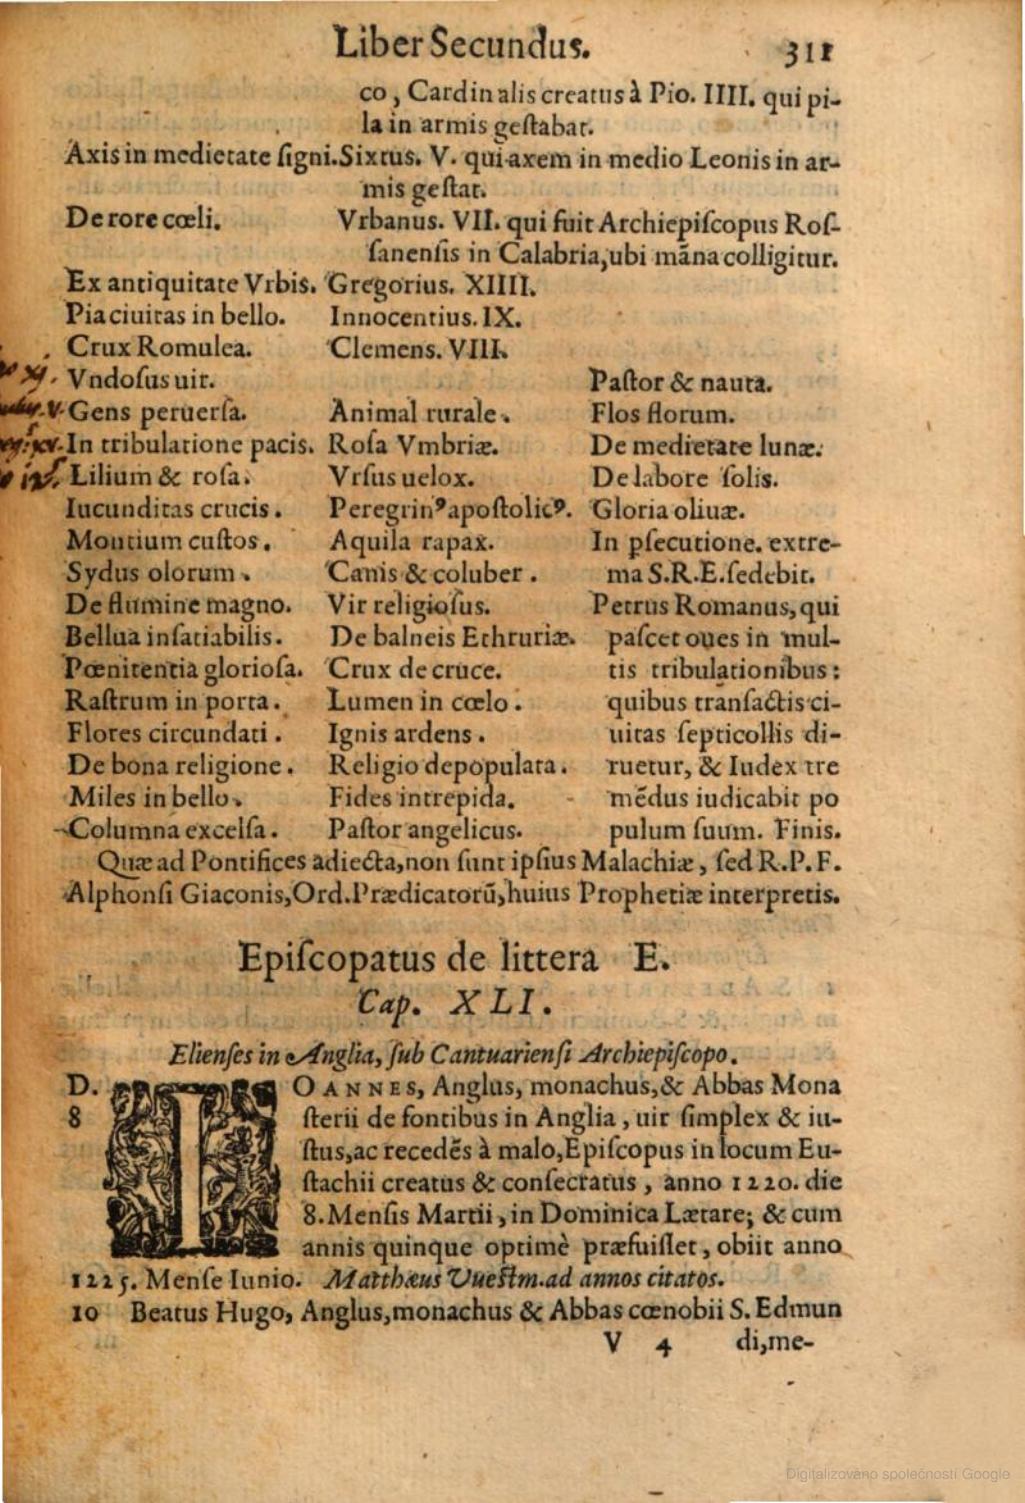 Liber Secundus. 311
co, Cardinalis creatus à Pio. IIII. qui pi-
la in armis geſtabat.
Axis in medietate ſigni. Sixtus. V. qui axem in medio Leonis in ar-
mis geſtat.
De rore cœli. Vrbanus. VII. qui fuit Archiepiſcopus Roſ-
ſanenſis in Calabria, ubi māna colligitur.
Ex antiquitate Vrbis. Gregorius. XIIII.
Pia ciuitas in bello. Innocentius. IX.
Crux Romulea. Clemens. VIII.
Vndoſus uir.
Gens peruerſa.
In tribulatione pacis.
Lilium & roſa.
Iucunditas crucis.
Montium cuſtos.
Sydus olorum.
De flumine magno.
Bellua inſatiabilis.
Pœnitentia glorioſa.
Raſtrum in porta.
Flores circundati.
De bona religione.
Miles in bello.
Columna excelſa.
Animal rurale.
Roſa Vmbriæ.
Vrſus uelox.
Peregrinꝰ apoſtolicꝰ.
Aquila rapax.
Canis & coluber.
Vir religioſus.
De balneis Ethruriæ.
Crux de cruce.
Lumen in cœlo.
Ignis ardens.
Religio depopulata.
Fides intrepida.
Paſtor angelicus.
Paſtor & nauta.
Flos florum.
De medietate lunæ.
De labore ſolis.
Gloria oliuæ.
In pſecutione. extre-
ma S.R.E. ſedebit.
Petrus Romanus, qui
paſcet oues in mul-
tis tribulationibus:
quibus tranſactis ci-
uitas ſepticollis di-
ruetur, & Iudex tre
mēdus iudicabit po
pulum ſuum. Finis.
Quæ ad Pontifices adiecta, non ſunt ipſius Malachiæ, ſed R.P.F.
Alphonſi Giaconis, Ord. Prædicatorū, huius Prophetiæ interpretis.
Epiſcopatus de littera E.
Cap. XLI.
Elienſes in Anglia, ſub Cantuarienſi Archiepiſcopo.
D. IOANNES, Anglus, monachus, & Abbas Mona
8 ſterii de fontibus in Anglia, uir ſimplex & iu-
ſtus, ac recedēs à malo, Epiſcopus in locum Eu-
ſtachii creatus & conſecratus, anno 1220. die
8. Menſis Martii, in Dominica Lætare; & cum
annis quinque optimè præfuiſſet, obiit anno
1225. Menſe Iunio. Matthæus Vueſtm. ad annos citatos.
10 Beatus Hugo, Anglus, monachus & Abbas cœnobii S. Edmun
V 4 di, me-
Digitalizováno společností Google